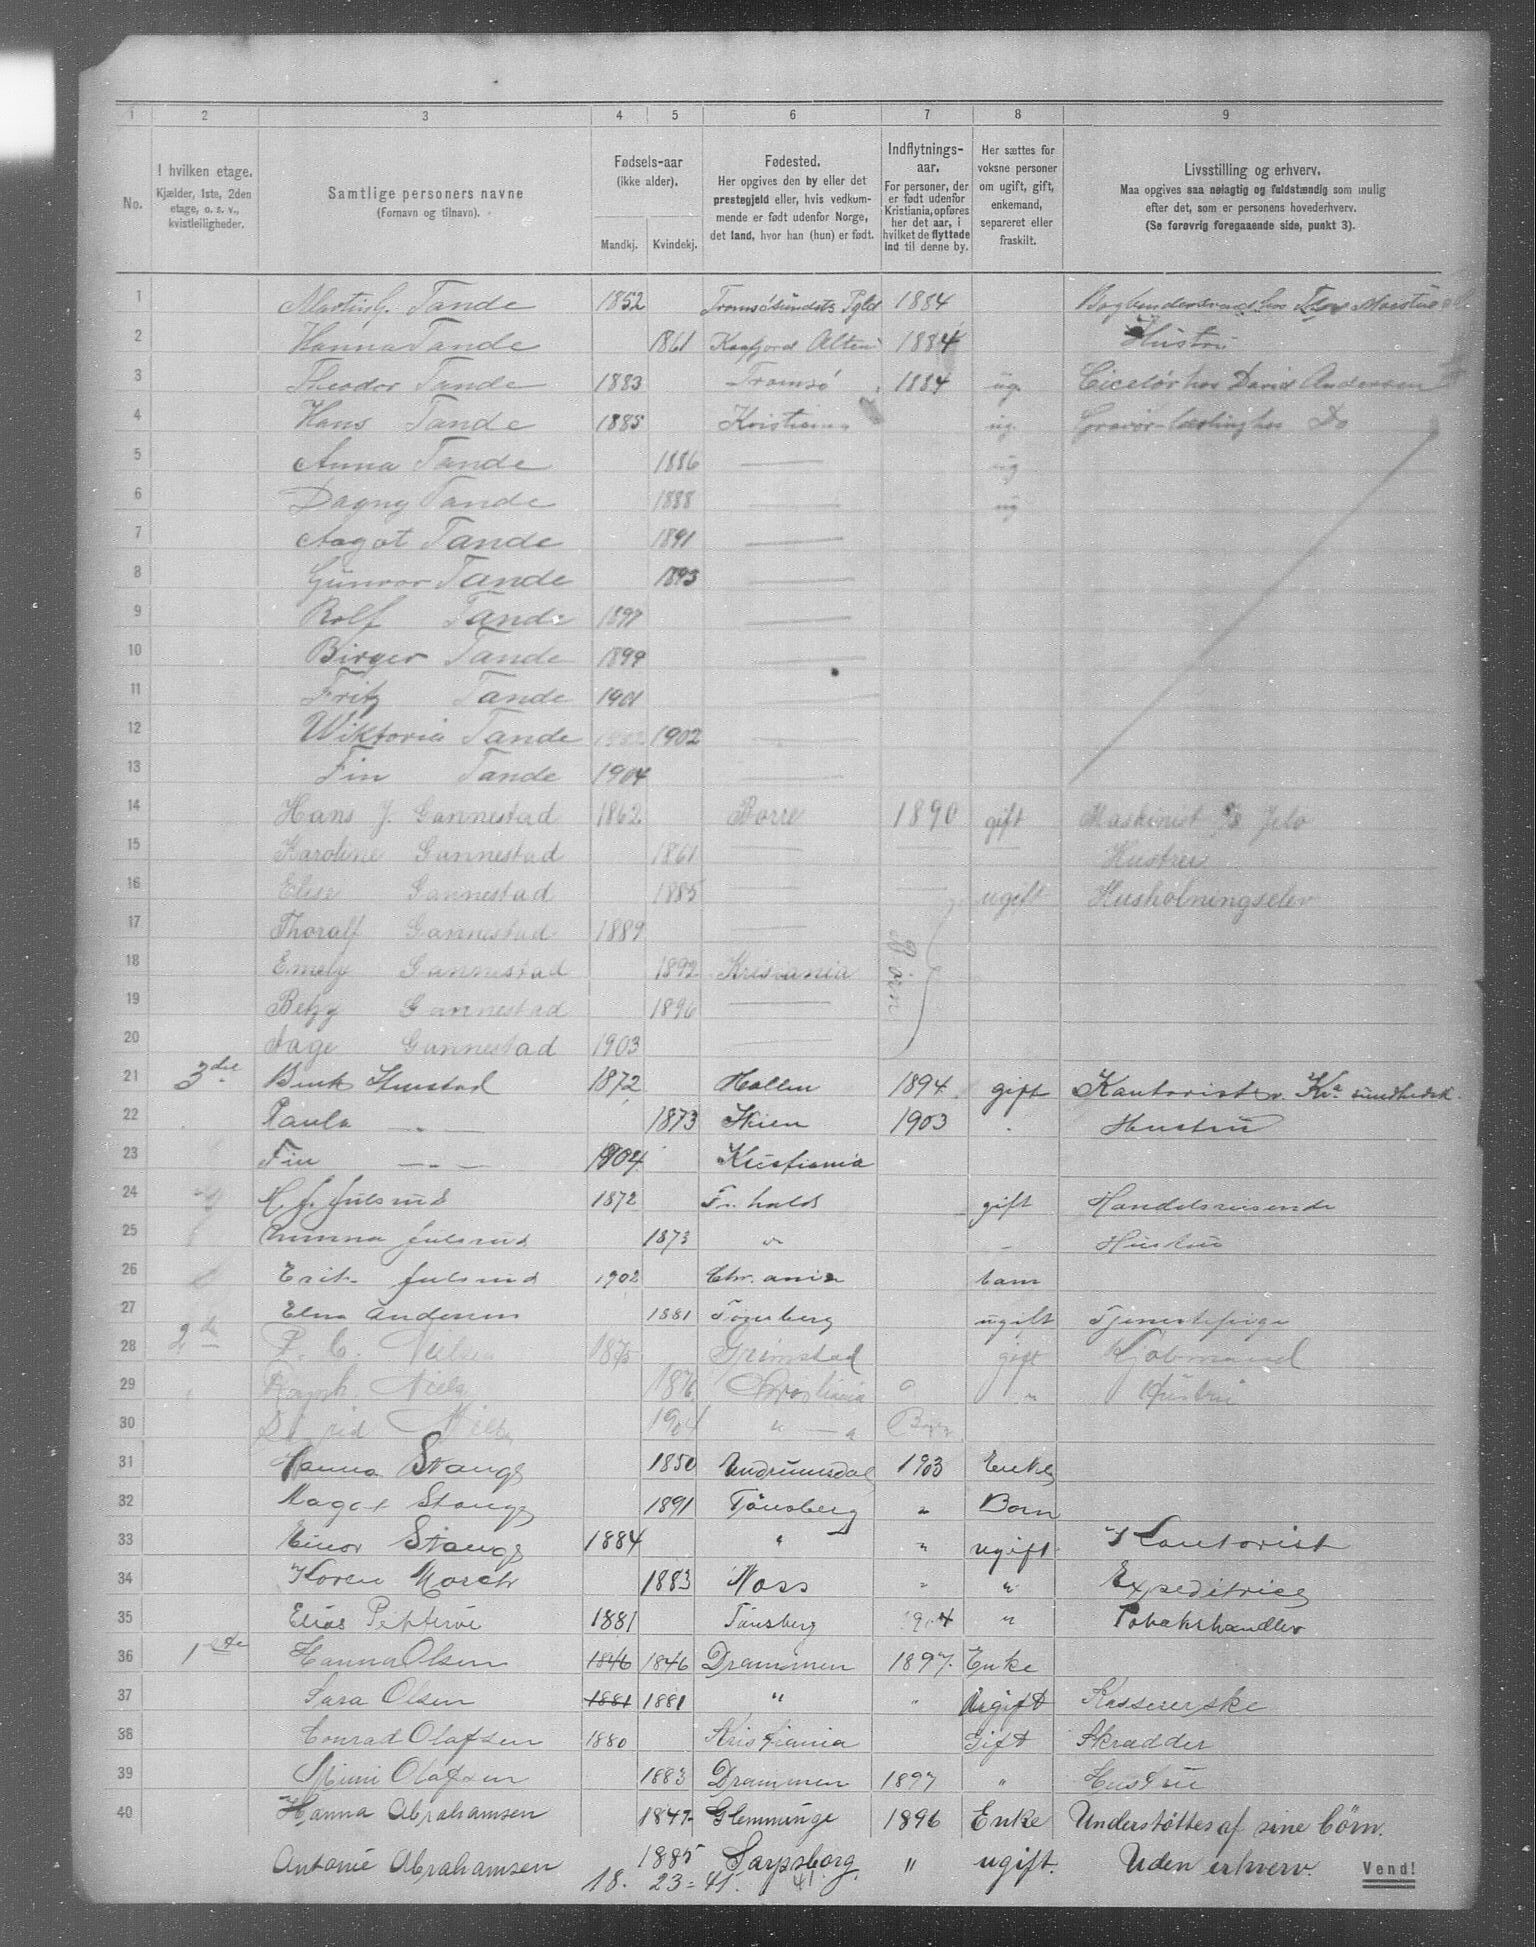 1 2 3 4 5 6 7 8 9
No.
I hvilken etage.
Kjælder, 1ste, 2den
etage, o. s. v.,
kvistleiligheder.
Samtlige personers navne
(Fornavn og tilnavn).
Fødsels-aar
(ikke alder).
Mandkj. Kvindekj.
Fødested.
Her opgives den by eller det
prestegjeld eller, hvis vedkom-
mende er født udenfor Norge,
det land, hvor han (hun) er født.
Indflytnings-
aar.
For personer, der
er født udenfor
Kristiania, opføres
her det aar, i
hvilket de flyttede
ind til denne by.
Her sættes for
voksne personer
om ugift, gift,
enkemand,
separeret eller
fraskilt.
Livsstilling og erhverv.
Maa opgives saa nøiagtig og fuldstændig som mulig
efter det, som er personens hovederhverv.
(Se forøvrig foregaaende side, punkt 3).
1 Tande 1852 Tromsösundets Pgld 1884
2 Hanna Tande 1861 Kaafjord Alten 1884 Hustru
3 Theodor Tande 1883 Tromsø 1884 ug. Ciselör hos David Andersen
4 Hans Tande 1885 Kristiania ug. Gravör-lærling hos Do
5 Anna Tande 1886 — ug
6 Dagny Tande 1888 — ug
7 Aagot Tande 1891 —
8 Gunvor Tande 1893 —
9 Rolf Tande 1897 —
10 Birger Tande 1899 —
11 Fritz Tande 1901 —
12 Wiktoria Tande 1902 1902 —
13 Fin Tande 1904 —
14 Hans J. Gannestad 1862 Borre 1890 gift Maskinist Jelø
15 Karoline Gannestad 1861 — — — Hustru
16 Elise Gannestad 1885 — — ugift Husholningselev
17 Thoralf Gannestad 1889 — Börn
18 Emely Gannestad 1892 Kristiania
19 Betzy Gannestad 1896 —
20 Aage Gannestad 1903
21 3die 1872 Hollen 1894 gift Kontorist v. Kra. sundhedsk.
22 Paula — " — 1873 Skien 1903 " Hustru
23 Fin — " — 1904 Kristiania
24 Julsrud 1872 Fr. hald gift Handelsreisende
25 Julsrud 1873 " - Hustru
26 Erik Julsrud 1902 Chr.ania barn
27 Elna Andersen 1881 Tönsberg ugift Tjenestepige
28 2de P. C. Nielsen 1875 Grimstad gift Kjöbmand
29 1876 Kristiania " Hustru
30 1904 " — " Barn
31 Hanna Stange 1850 1903 Enke
32 Magot Stange 1891 Tönsberg " Barn
33 Einar Stange 1884 " " ugift Kontorist
34 Karen Morch 1883 Moss " " Expeditrice
35 Elias 1881 Tönsberg 1904 " Tobakshandler
36 1ste Hanna Olsen 1846 1846 Drammen 1897. Enke
37 Sara Olsen 1881 1881 " " Ugift Kassererske
38 Conrad Olafsen 1880 Kristiania Gift Skrædder
39 Mimi Olafsen 1883 Drammen 1897 " Hustru
40 Hanna Abrahamsen 1847 Glemminge 1896 Enke Understøttes af sine börn.
Antonie Abrahamsen 1885 Sarpsborg. " ugift. Uden erhverv. Vend!
18. 23 = 41. 41